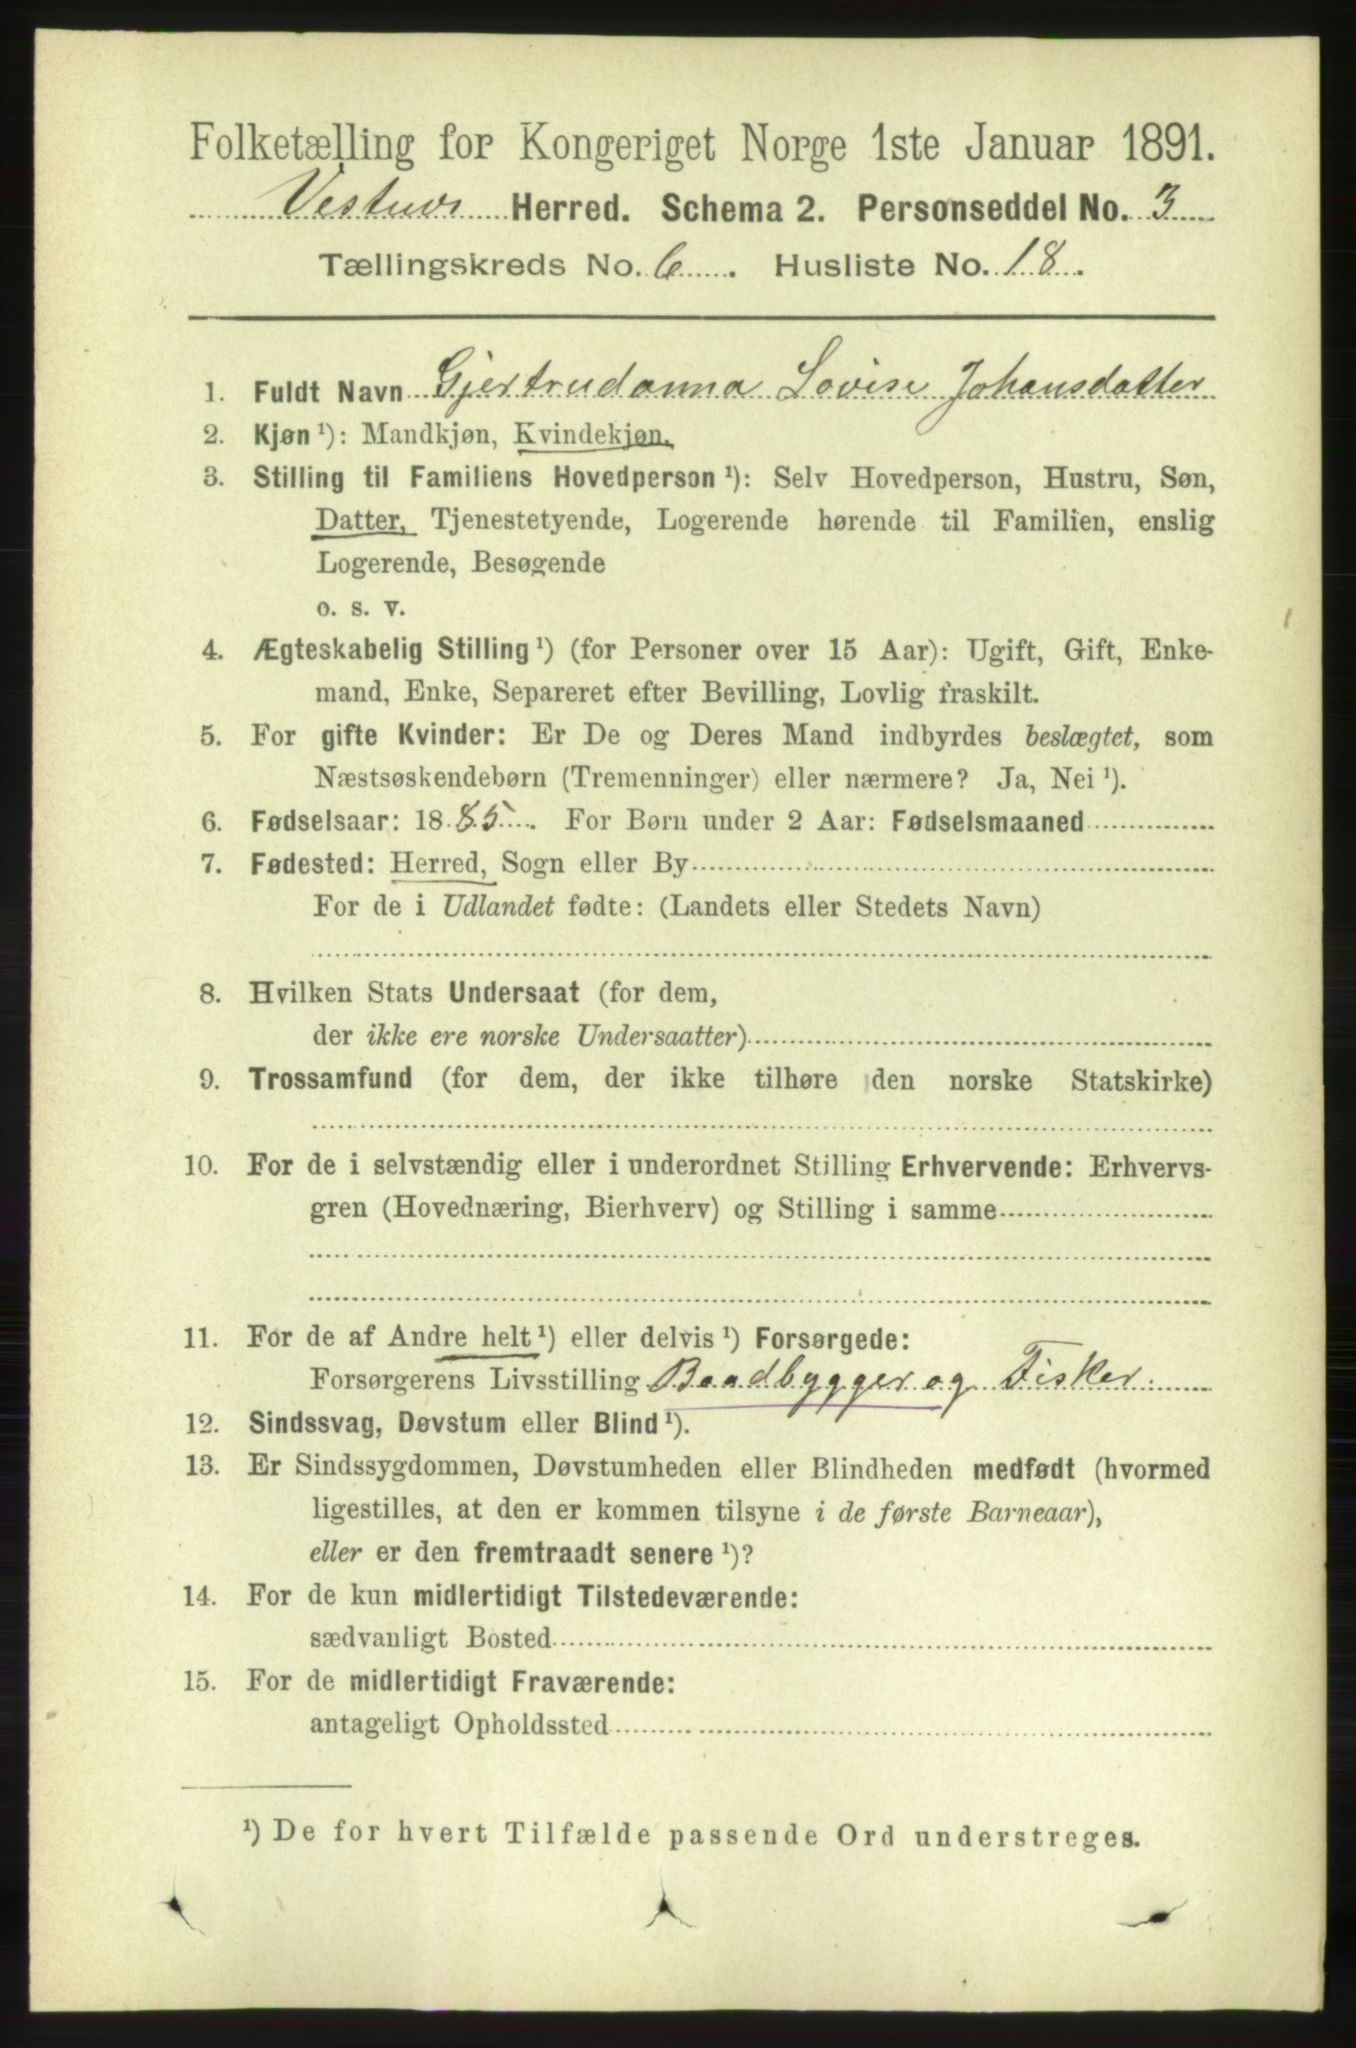 Folketælling for Kongeriget Norge 1ste Januar 1891.
Herred. Schema 2. Personseddel No. 3
Tællingskreds No. 6. Husliste No. 18.
1. Fuldt Navn Gjertrudanna Lovise Johansdatter
2. Kjøn ¹): Mandkjøn, Kvindekjøn.
3. Stilling til Familiens Hovedperson ¹): Selv Hovedperson, Hustru, Søn,
Datter, Tjenestetyende, Logerende hørende til Familien, enslig
Logerende, Besøgende
o. s. v.
4. Ægteskabelig Stilling ¹) (for Personer over 15 Aar): Ugift, Gift, Enke-
mand, Enke, Separeret efter Bevilling, Lovlig fraskilt.
5. For gifte Kvinder: Er De og Deres Mand indbyrdes beslægtet, som
Næstsøskendebørn (Tremenninger) eller nærmere? Ja, Nei ¹).
6. Fødselsaar: 1885. For Børn under 2 Aar: Fødselsmaaned
7. Fødested: Herred, Sogn eller By
For de i Udlandet fødte: (Landets eller Stedets Navn)
8. Hvilken Stats Undersaat (for dem,
der ikke ere norske Undersaatter)
9. Trossamfund (for dem, der ikke tilhøre den norske Statskirke)
10. For de i selvstændig eller i underordnet Stilling Erhvervende: Erhvervs-
gren (Hovednæring, Bierhverv) og Stilling i samme
11. For de af Andre helt ¹) eller delvis ¹) Forsørgede:
Forsørgerens Livsstilling Baadbygger og Fisker.
12. Sindssvag, Døvstum eller Blind ¹).
13. Er Sindssygdommen, Døvstumheden eller Blindheden medfødt (hvormed
ligestilles, at den er kommen tilsyne i de første Barneaar),
eller er den fremtraadt senere ¹)?
14. For de kun midlertidigt Tilstedeværende:
sædvanligt Bosted
15. For de midlertidigt Fraværende:
antageligt Opholdssted
¹) De for hvert Tilfælde passende Ord understreges.